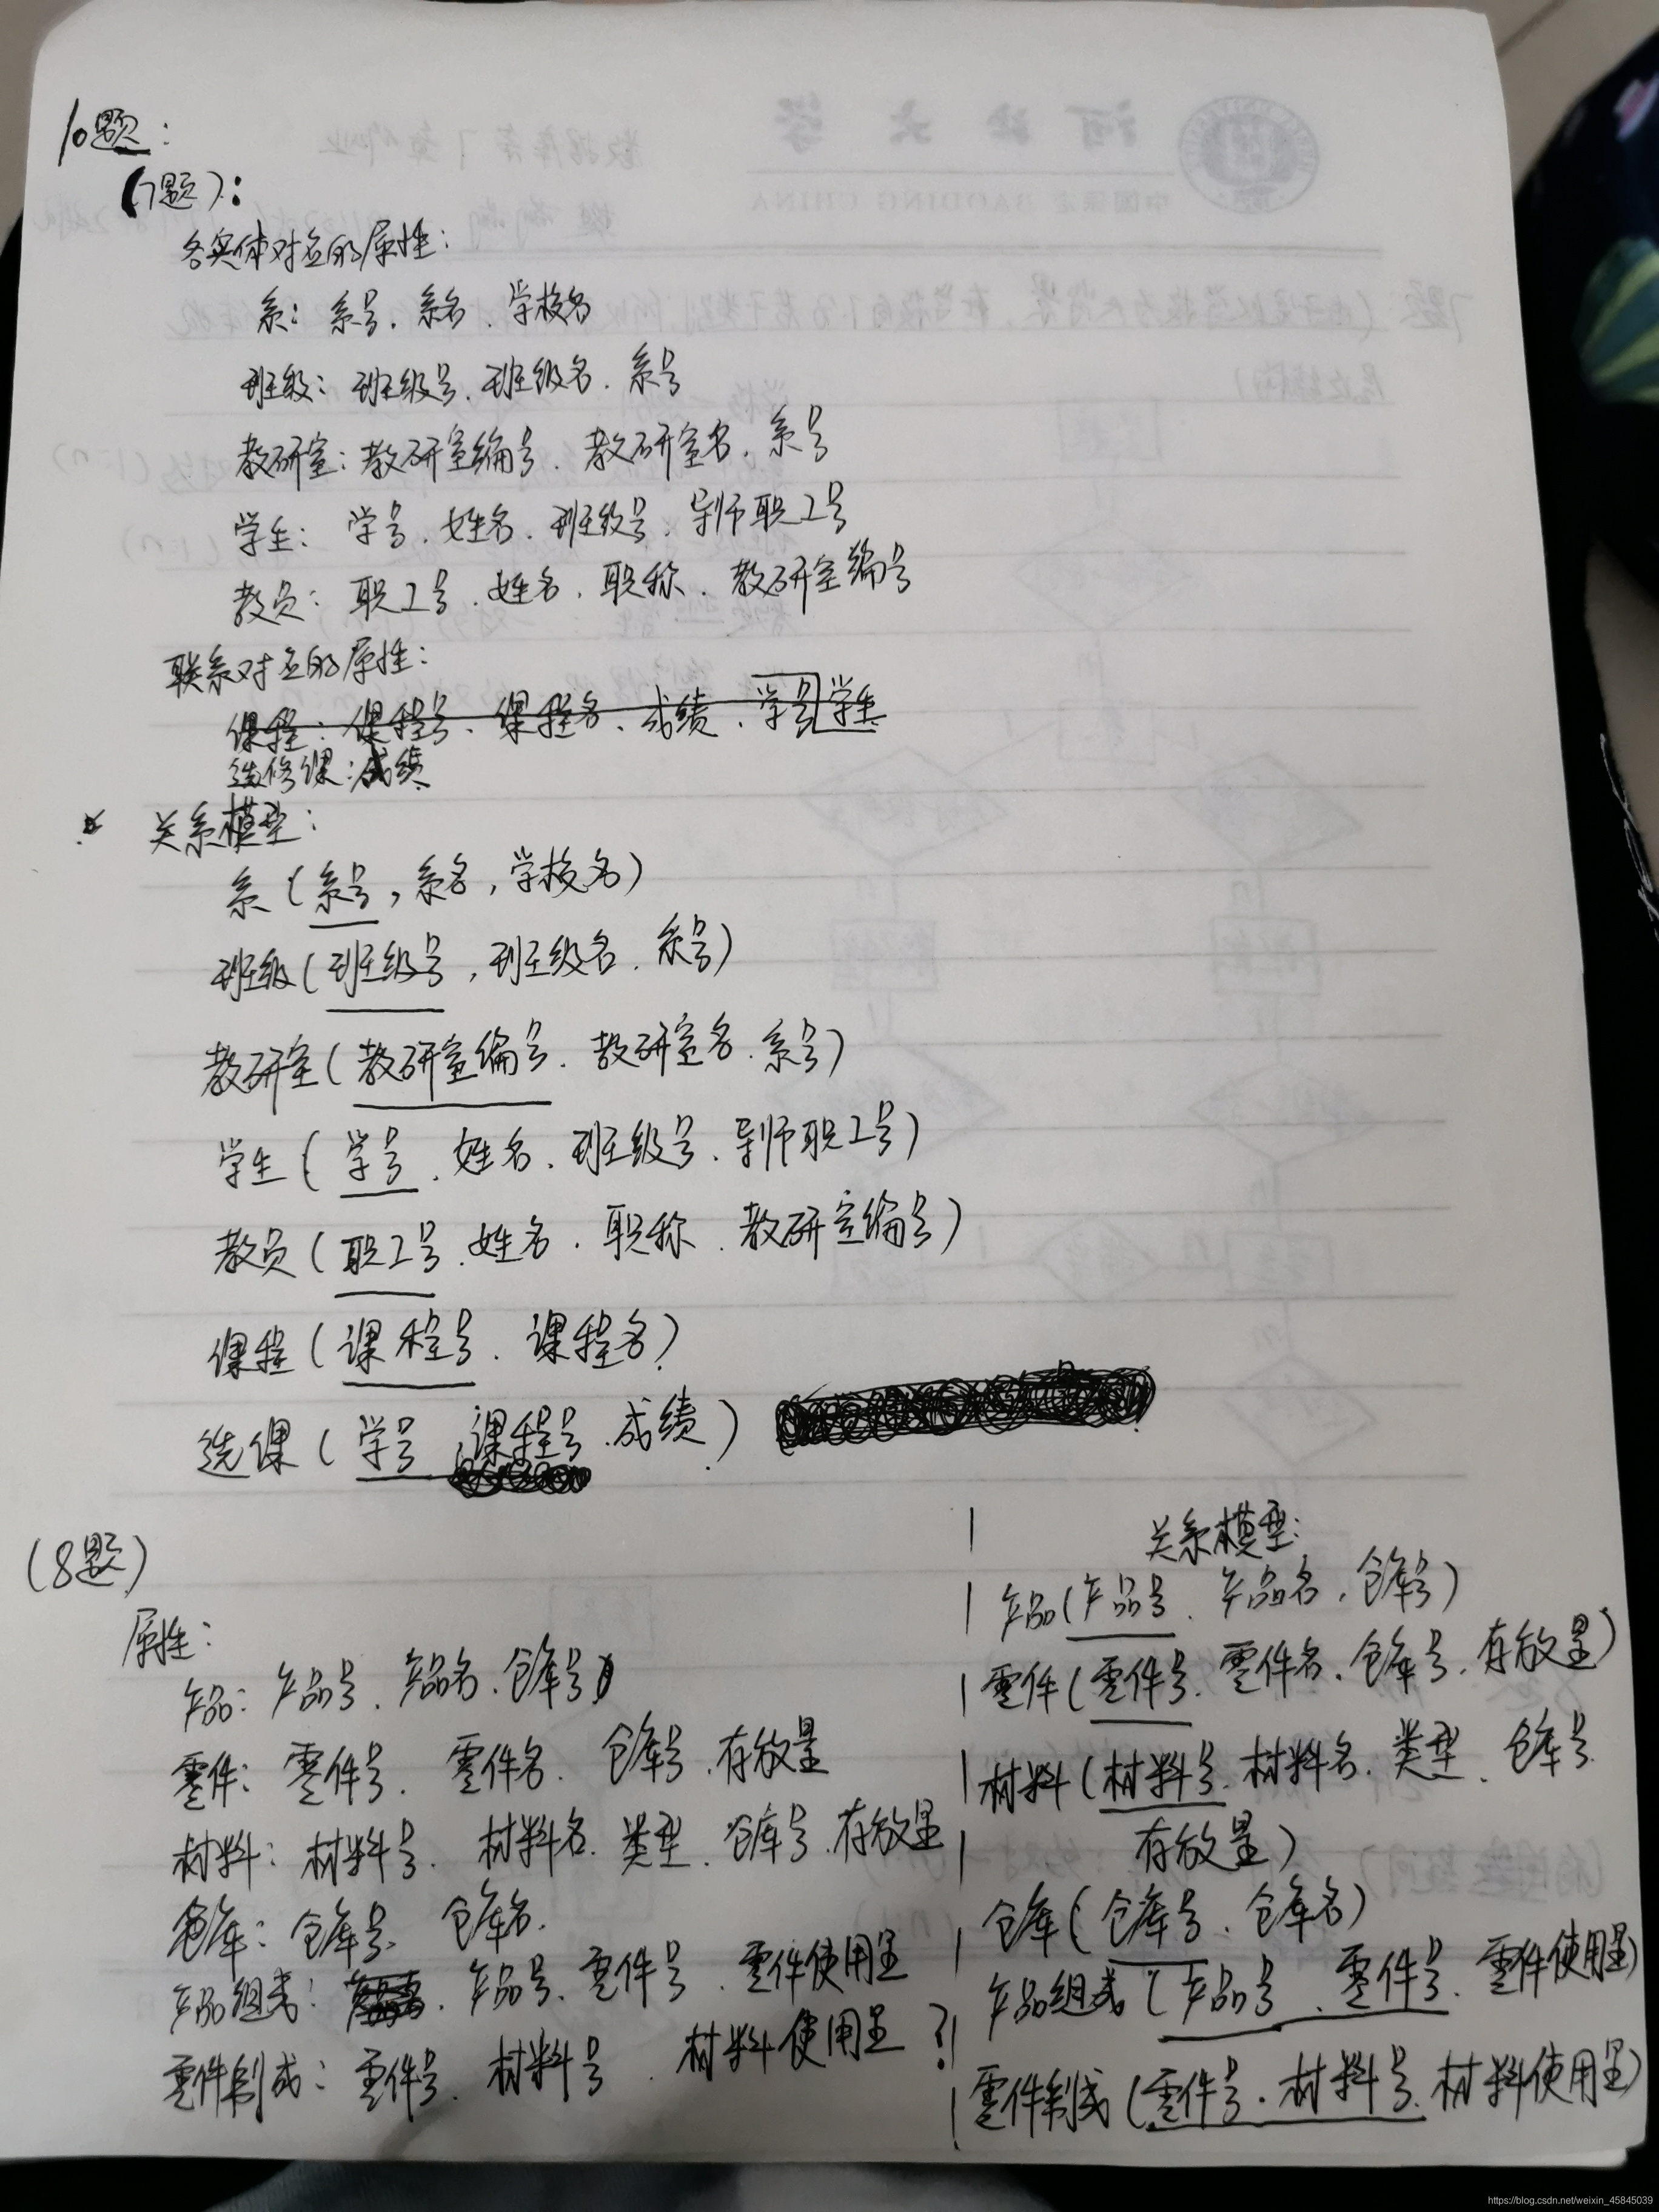 10题:
(7题):
各实体对应的属性:
系: 系号、系名、学校名
班级: 班级号、班级名、系号
教研室: 教研室编号、教研室名、系号
学生: 学号、姓名、班级号、导师职工号
教员: 职工号、姓名、职称、教研室编号
联系对应的属性:
课程: 课程号、课程名、成绩、学号 学生
选修课: 成绩
关系模型:
系(系号, 系名, 学校名)
班级(班级号, 班级名、系号)
教研室(教研室编号、教研室名、系号)
学生(学号、姓名、班级号、导师职工号)
教员(职工号、姓名、职称、教研室编号)
课程(课程号、课程名)
选课(学号、课程号、成绩)
(8题)
属性:
产品: 产品号、产品名、仓库号
零件: 零件号、零件名、仓库号、存放量
材料: 材料号、材料名、类型、仓库号、存放量
仓库: 仓库号、仓库名.
产品组成: 产品号、零件号、零件使用量
零件制成: 零件号、材料号、材料使用量?
关系模型:
产品(产品号、产品名、仓库号)
零件(零件号、零件名、仓库号、存放量)
材料(材料号、材料名、类型、仓库号
存放量)
仓库(仓库号、仓库名)
产品组成(产品号、零件号、零件使用量)
零件制成(零件号、材料号、材料使用量)
河北大学
中国保定 BAODING CHINA
数据库第7章作业
https://blog.csdn.net/weixin_45845039